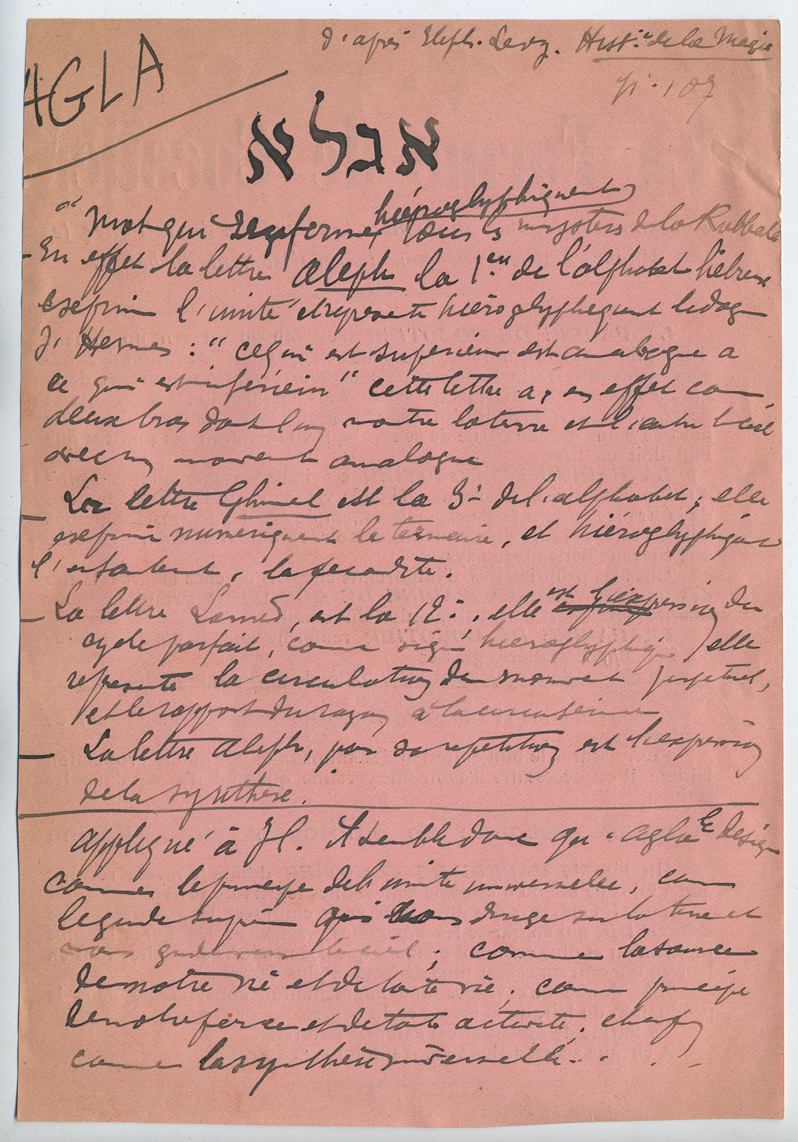 d'après Eliph. Levy. Hist.re de la Magie
p. 107
AGLA
אגלא
"Mot qui renferme hiéroglyphiquent tous les mystères de la Kabbale
En effet la lettre Aleph la 1ère de l'alphabet hébreu
exprime l'unité et represente hiéroglyphiquent le dogme
d'Hermes : "ce qui est superieur est analogue a
ce qui est inférieur" cette lettre a, en effet comme
deux bras dont l'un montre la terre et l'autre le ciel
avec un mouvent analogue
La lettre Ghimel est la 3e de l'alphabet ; elle
exprime numeriquent le ternaire, et hiéroglyphiquent
l'enfantent, la fecondité.
La lettre Lamed, est la 12e, elle est l'expression du
cycle parfait, comme signe hieroglyphique, elle
represente la circulation du mouvent perpetuel,
et le rapport du rayon à la circonference
La lettre Aleph, par sa repetition est l'expression
de la synthèse.
Appliqué à Il semble donc que Agla le designe
comme le principe de l'unité universelle, comme
le guide suprême qui nous dirige sur la terre et
nous guidera vers le ciel ; comme la source
de notre vie et de toute vie, comme principe
de notre force et de toute activité, enfin
comme la synthèse universelle. . .